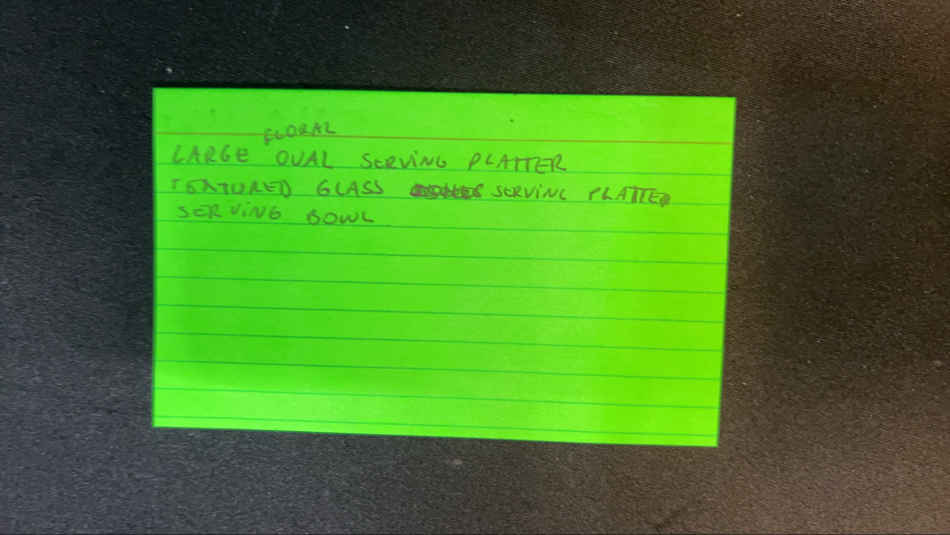 FLORAL
LARGE OVAL SERVING PLATTER
TEXTURED GLASS SERVING PLATTER
SERVING BOWL